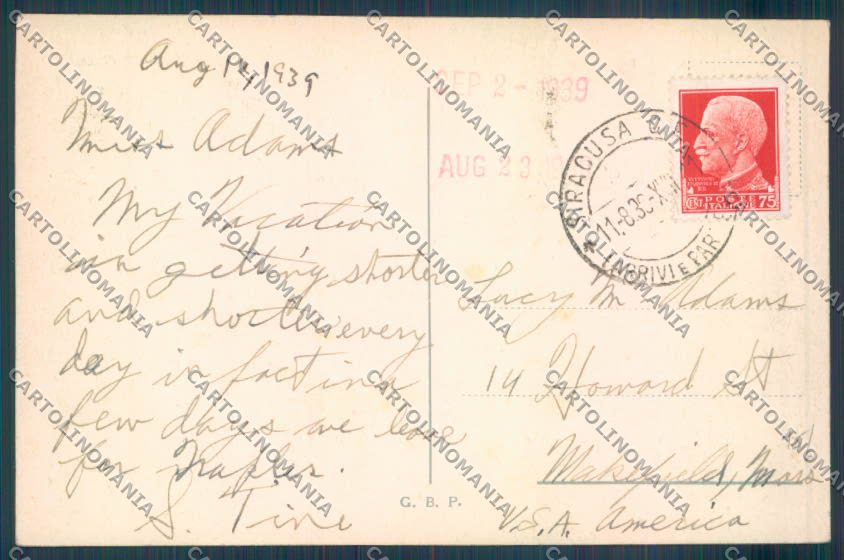 Aug 1939
SEP 2 - 1939
Miss Adams
AUG 23 19
SIRACUSA
11.8.39-XVII
ARRIVI E PAR
POSTE ITALIANE
CENT 75
My Vacation
is getting shorter
and shorter every
day in fact in a
few days we leave
for Naples.
S. Tine
Lucy M. Adams
14 Howard St
Wakefield, Mass
U.S.A. America
G. B. P.
CARTOLINOMANIA